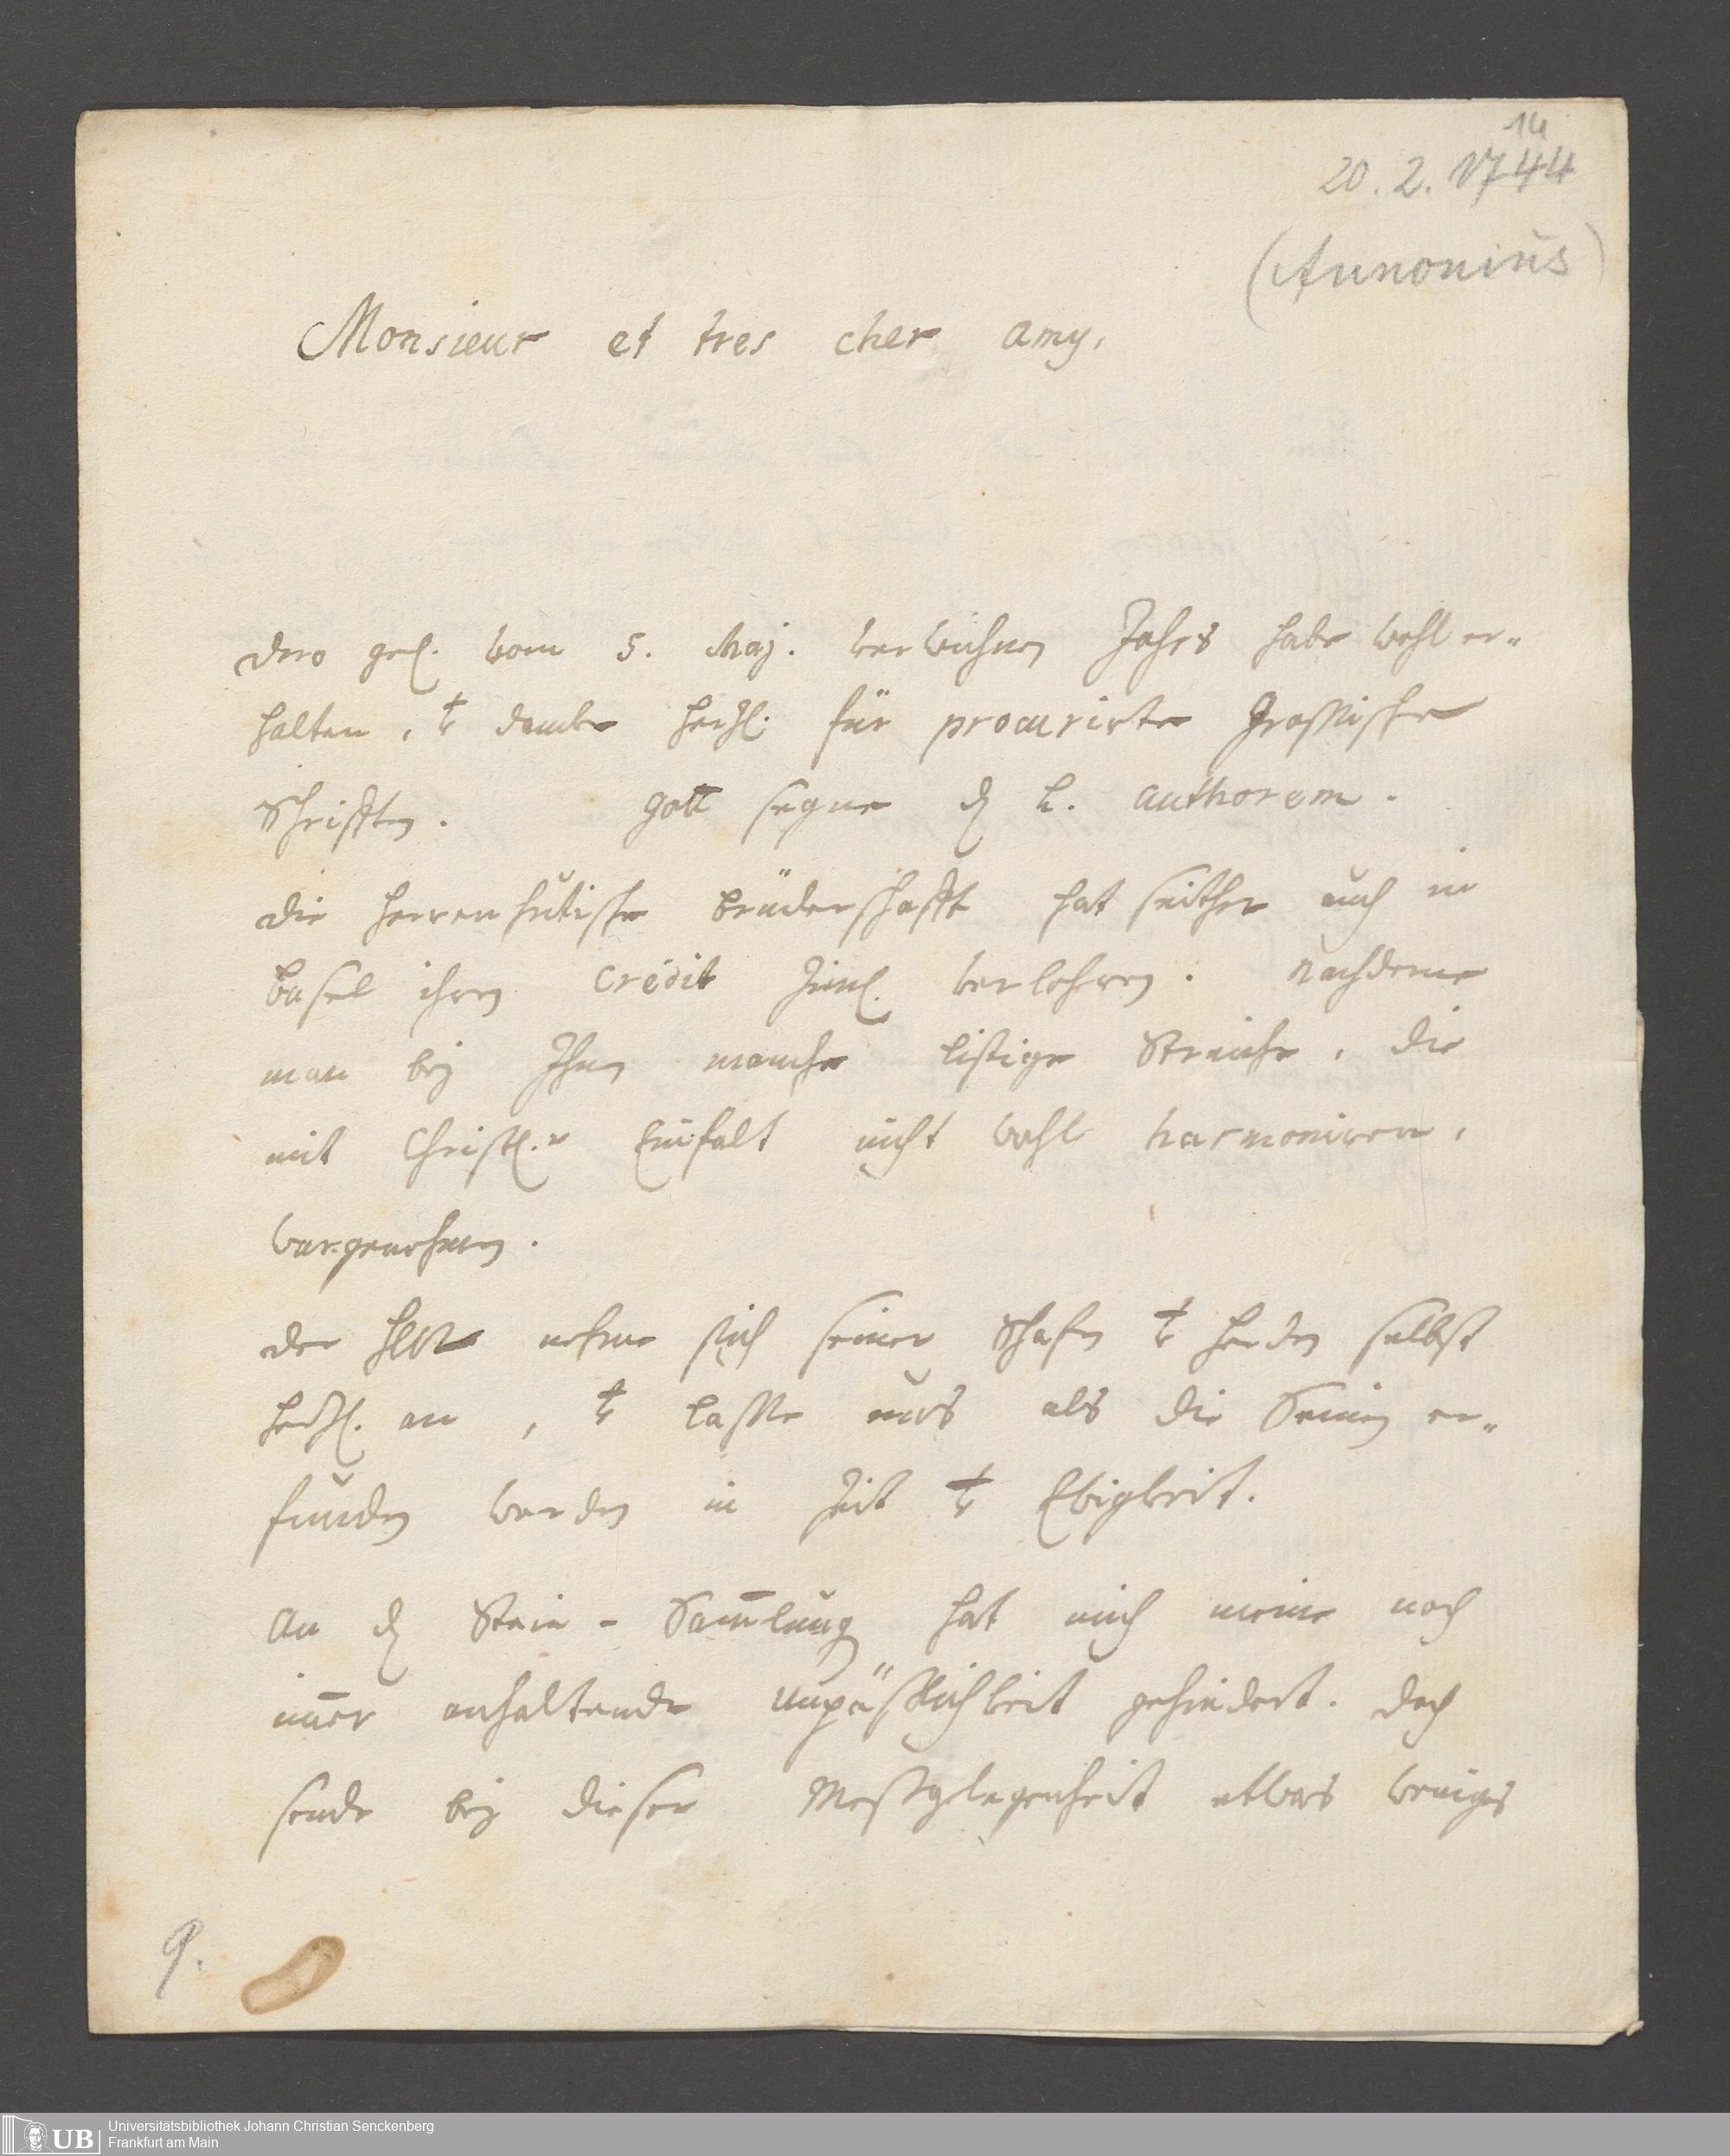 14
20. 2. 1744
(Annonius)
Monsieur et tres cher amy,
dero gel. vom 5. Maj. verwichnen Jahrs habe wohl er-
halten, & dancke hertzl. für procurirte Grossische
Schrifften. Gott segne d. l. authorem.
die Herrenhutische Brüderschafft hat seither auch in
Basel ihren Credit ziml. verlohren. nachdeme
man bey Ihnen manche listige Streiche, die
mit Christl.r Einfalt nicht wohl harmoniren,
wargenohmen.
der HERR nehme sich seiner Schafen & Herden selbst
hertzl. an, & lasse uns als die Seinen er-
funden werden in Zeit & Ewigkeit.
An d. Stein-Samlung hat mich meine noch
imer anhaltende Unpässlichkeit gehindert. doch
sende bey dieser Messgelegenheit etwas weniges
9.
UB Universitätsbibliothek Johann Christian Senckenberg
Frankfurt am Main